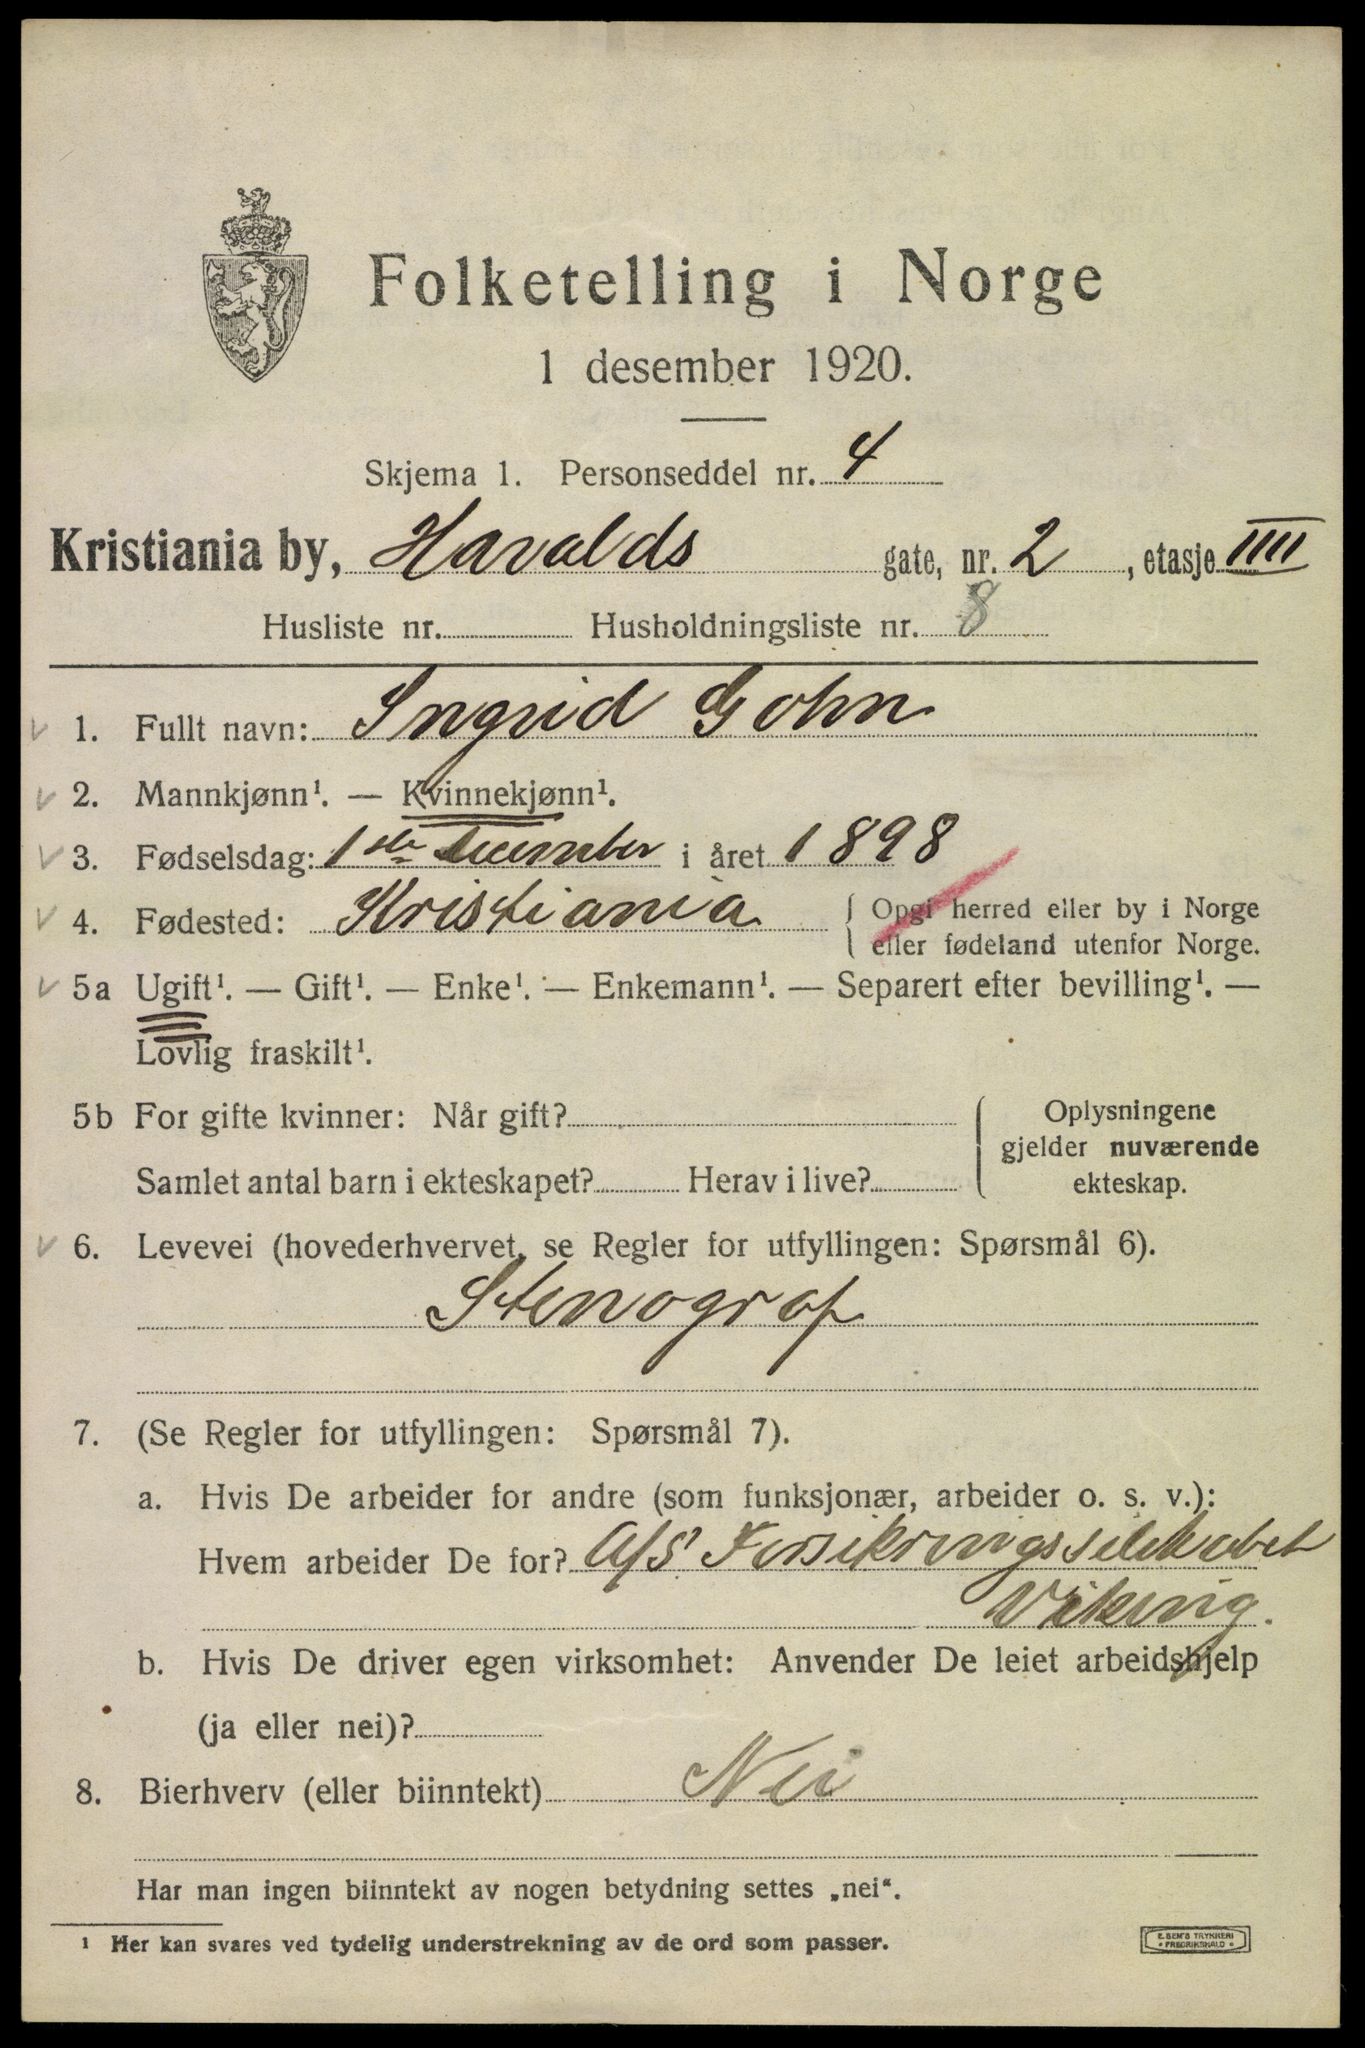 Folketelling i Norge
1 desember 1920.
Skjema 1. Personseddel nr. 4
Kristiania by, Haralds gate, nr. 2, etasje IIII
Husliste nr. Husholdningsliste nr. 8
1. Fullt navn: Ingrid Gohn
2. Mannkjønn¹. — Kvinnekjønn¹.
3. Fødselsdag: 1ste december i året 1898
4. Fødested: Kristiania { Opgi herred eller by i Norge
eller fødeland utenfor Norge.
5a Ugift¹. — Gift¹. — Enke¹. — Enkemann¹. — Separert efter bevilling¹. —
Lovlig fraskilt¹.
5b For gifte kvinner: Når gift? { Oplysningene
gjelder nuværende
Samlet antal barn i ekteskapet? Herav i live? ekteskap.
6. Levevei (hovederhvervet, se Regler for utfyllingen: Spørsmål 6).
Stenograf
7. (Se Regler for utfyllingen: Spørsmål 7).
a. Hvis De arbeider for andre (som funksjonær, arbeider o. s. v.):
Hvem arbeider De for? A/S Forsikringsselskabet
Viking.
b. Hvis De driver egen virksomhet: Anvender De leiet arbeidshjelp
(ja eller nei)?
8. Bierhverv (eller biinntekt) Nei
Har man ingen biinntekt av nogen betydning settes „nei“.
¹ Her kan svares ved tydelig understrekning av de ord som passer.
E. SEM'S TRYKKERI
• FREDRIKSHALD •